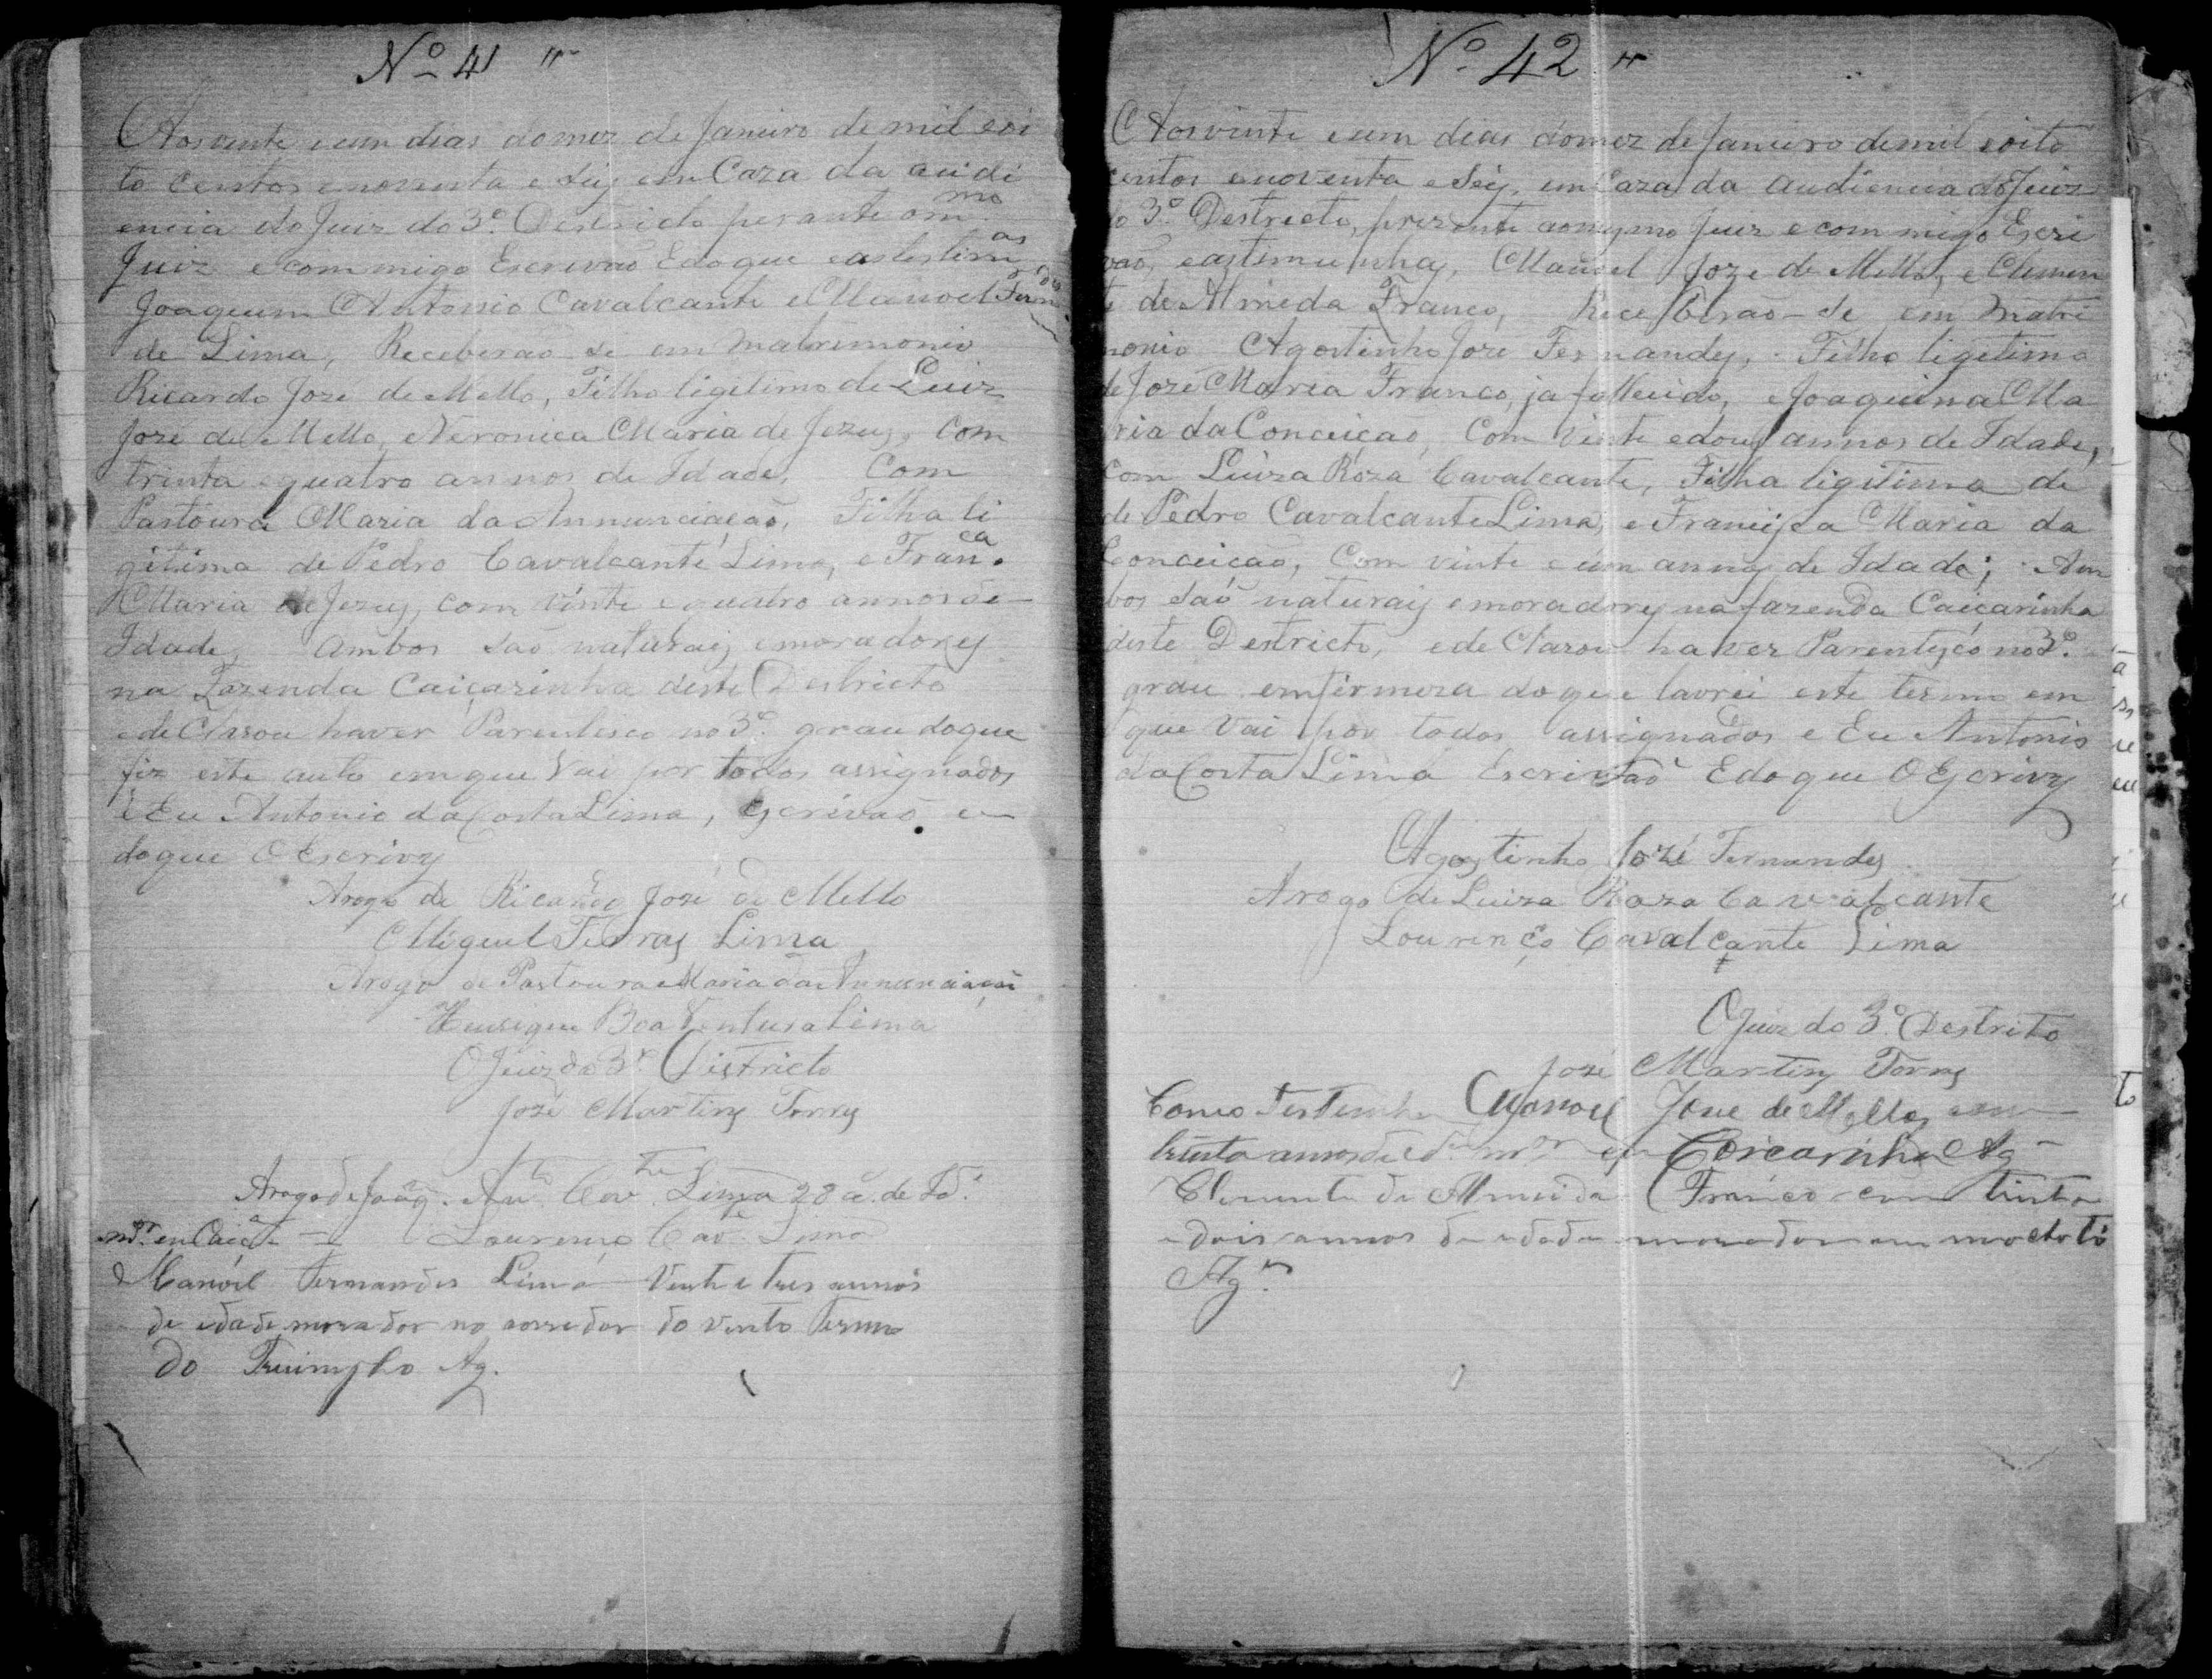 Nº 41 "
Aos vinte e um dias do mez de Janeiro de mil eoi
to centos enoventa e seis em Caza da audi
encia do Juiz do 3º Destricto perante o mmo
Juiz e commigo Escrivão Edoque eastestimas
Joaquim Antonio Cavalcante e Manoel Fernandes
de Lima, Receberão se em Matrimonio
Ricardo José de Mello, Filho ligitimo de Luiz
José de Mello, e Veronica Maria de Jezus, Com
trinta equatro annos de Idade, Com
Pastoura Maria da Annunciação, Filha li
gitima de Pedro Cavalcante Lima, e Franca
Maria de Jezus, com vinte e quatro annos de
Idade, Ambos são naturais emoradores
na Fazenda Caiçarinha deste Destricto
e de Clarou haver Parentesco no 3º grau doque
fiz este auto emque vai por todos assignados
e Eu Antonio da Costa Lima, Escrivão e
doque O Escrivy
Arogo de Ricardo José de Mello
Miguel Ferras Lima
Arogo de Pastoura Maria da Annunciação
Henrique Boa Ventura Lima
O Juiz do 3º Districto
José Martins Torres
Arogo de Joaq. Anto Cavte Lima 28 a. de Id.
mor. em Caiça
Lourenço Cave Lima
Manoel Fernandes Lima Vinte e tres annos
de idade morador no corredor do vento termo
do Triumpho Ag.
Nº 42 "
Aos vinte e um dias domez de Janeiro de mil eoito
centos enoventa e seis, em Caza da audiencia do Juiz
do 3º Destricto, prezente aomesmo Juiz e commigo Escri
vão, eastimunhas, Manoel Joze de Mello, e Clemen
te de Almeda Franco, Receberão-se em Matri
monio Agostinho José Fernandes, Filho ligitimo
de José Maria Franco, ja fallecido, e Joaquina Ma
ria da Conceição, Com Vinte edous annos de Idade,
Com Luiza Roza Cavalcante, Filha ligitima de
de Pedro Cavalcante Lima, e Francisca Maria da
Conceição, Com vinte e um annos de Idade; Am
bos são naturais emoradores na fazenda Caiçarinha
deste Destricto, ede Clarou haver Parentesco no 3º
grau emfirmeza doque lavrei este termo em
que Vai por todos assignados e Eu Antonio
da Costa Lima Escrivão Edoque O Escrivy
Agostinho José Fernandes
Arogo de Luiza Roza Cavalcante
Lourenço Cavalcante Lima
O Juiz do 3º Destrito
José Martins Torres
Como Testemha Manoel Joze de Mello com
trinta annos de id. mor em Caicarinha Ag
Clemente de Almeida Franco com trinta
e dois annos de idade morador em
Agr